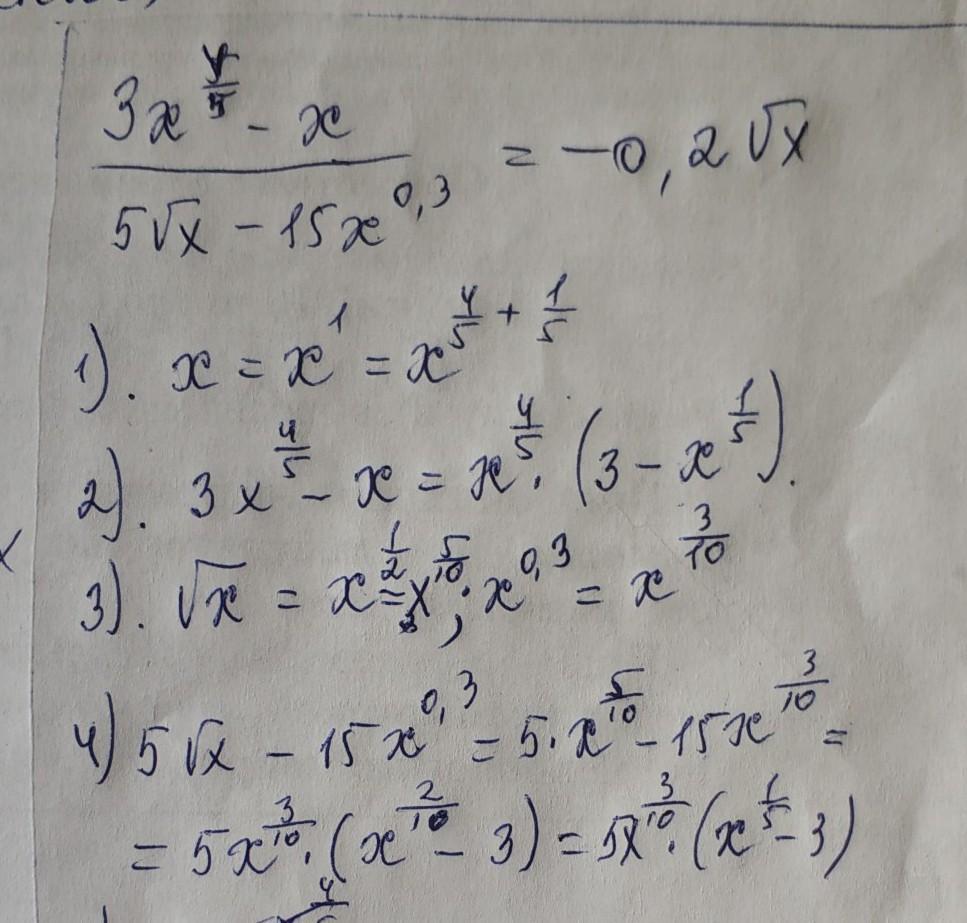 (3x^(4/5) - x)/(5√x - 15x^0,3) = -0,2√x
1). x = x^1 = x^(4/5 + 1/5)
2). 3x^(4/5) - x = x^(4/5) · (3 - x^(1/5)).
3). √x = x^(1/2) = x^(5/10); x^0,3 = x^(3/10)
4) 5√x - 15x^0,3 = 5·x^(5/10) - 15x^(3/10) =
= 5x^(3/10) · (x^(2/10) - 3) = 5x^(3/10) · (x^(1/5) - 3)